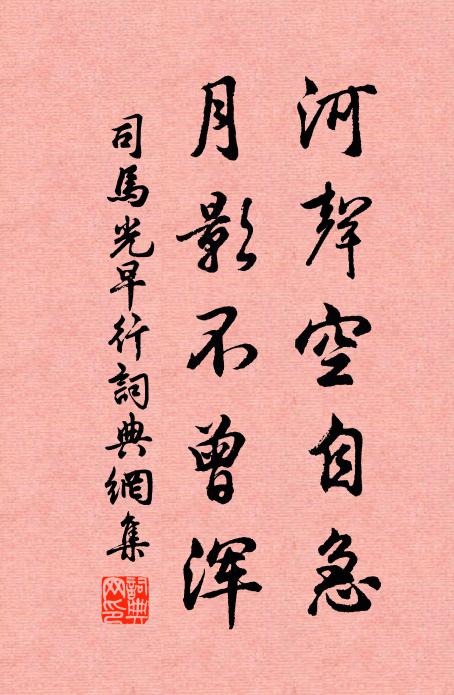 河聲空自急
月影不曾渾
司馬光早行詞典網集
詞典網印